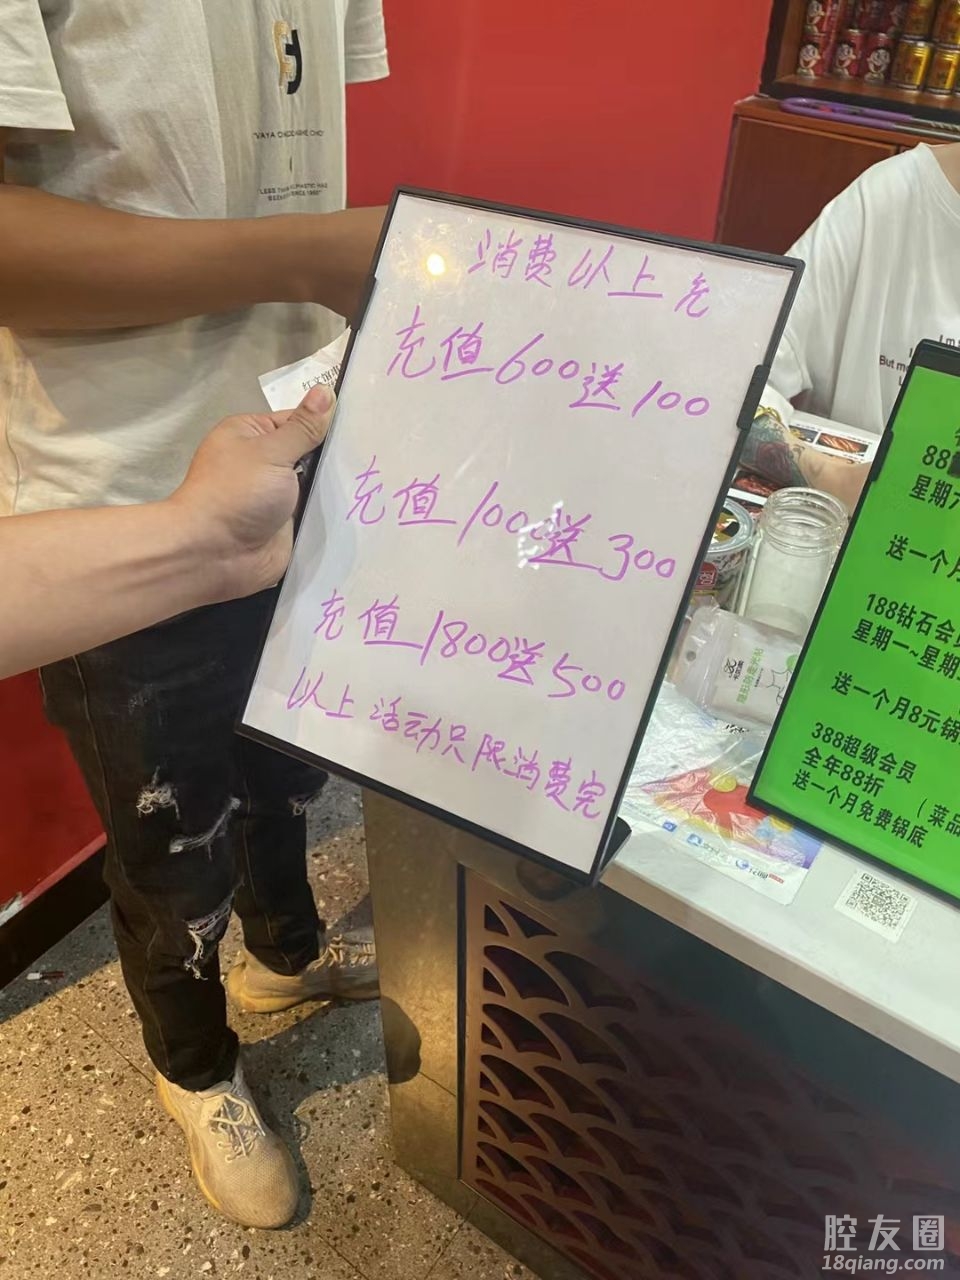 消费以上充
充值600送100
充值1000送300
充值1800送500
以上活动只限消费完
88
星期六
送一个月
188钻石会员
星期一~星期
送一个月8元锅
388超级会员
全年88折
（菜品
送一个月免费锅底
"LESS
I'm
But
腔友圈
18qiang.com